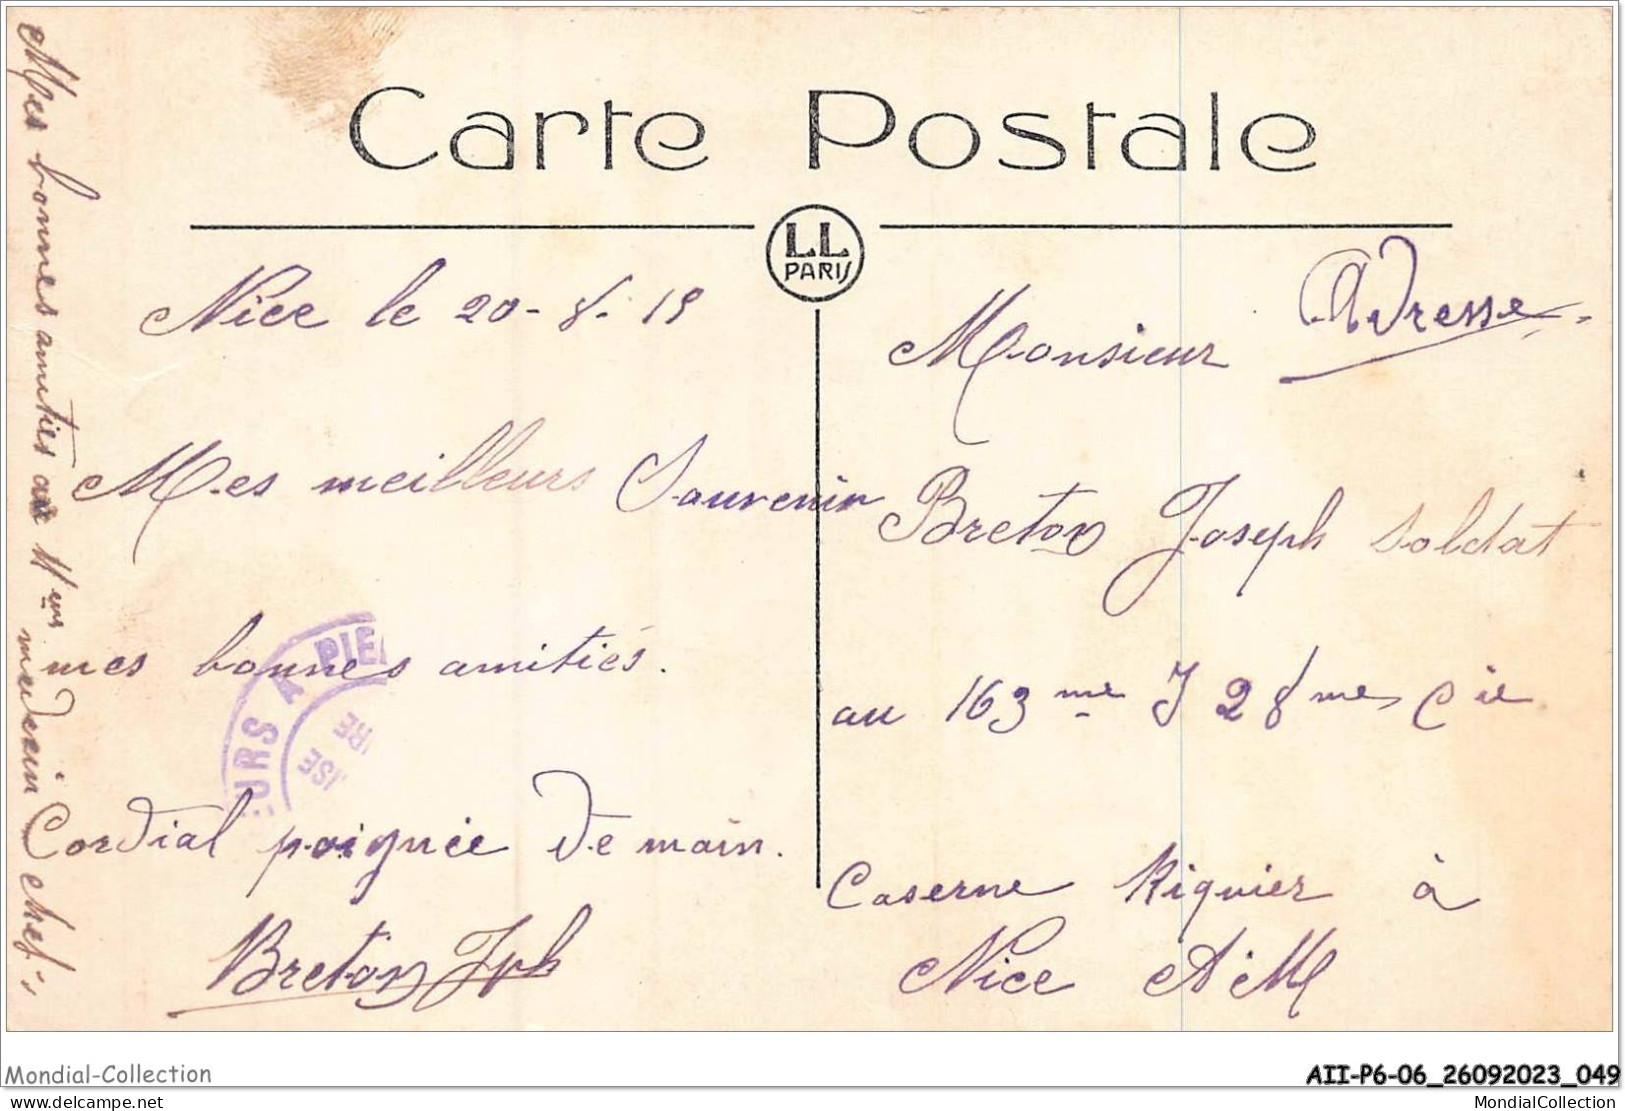 Carte Postale
LL
PARIS
Nice le 20-8-19
Mes meilleurs Souvenir
mes bonnes amitiés.
Cordial poignée de main.
Breton Jph
Adresse
Monsieur
Breton Joseph Soldat
au 163me I 28me Cie
Caserne Riquier à
Nice A.M
Mes bonnes amitiés au
medecin chef
EURS A PIE
Mondial-Collection
AII-P6-06_26092023_049
www.delcampe.net
MondialCollection